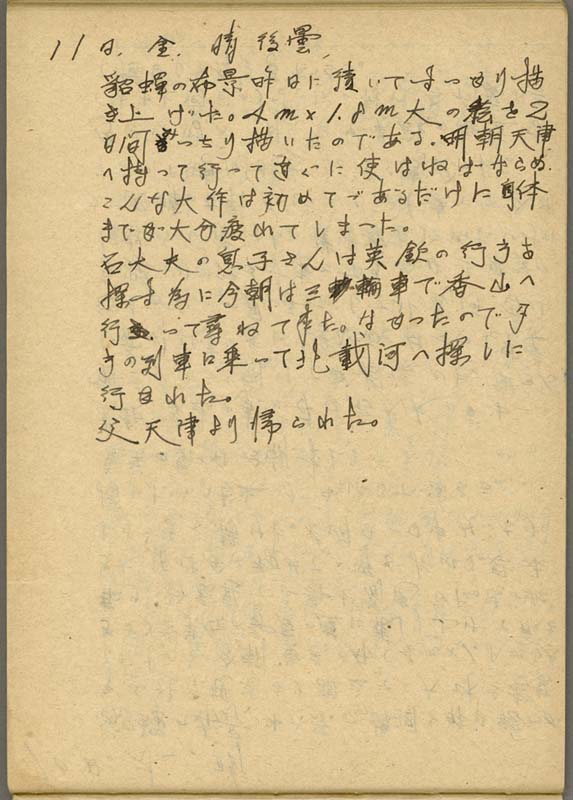 11日、金、晴後曇、
貂蟬の布景昨日に続いてすっかり描
き上げた。4m×1.8m大の絵を2
日間みっちり描いたのである。明朝天津
へ持って行って直ぐに使はねばならぬ。
こんな大作は初めてであるだけに身体
までが大分疲れてしまった。
石大夫の息子さんは英欽の行き
探す為に今朝は三輪車で香山へ
行って尋ねて来た。なかったので夕
の列車に乗って北載河へ探しに
行かれた。
父天津より帰られた。